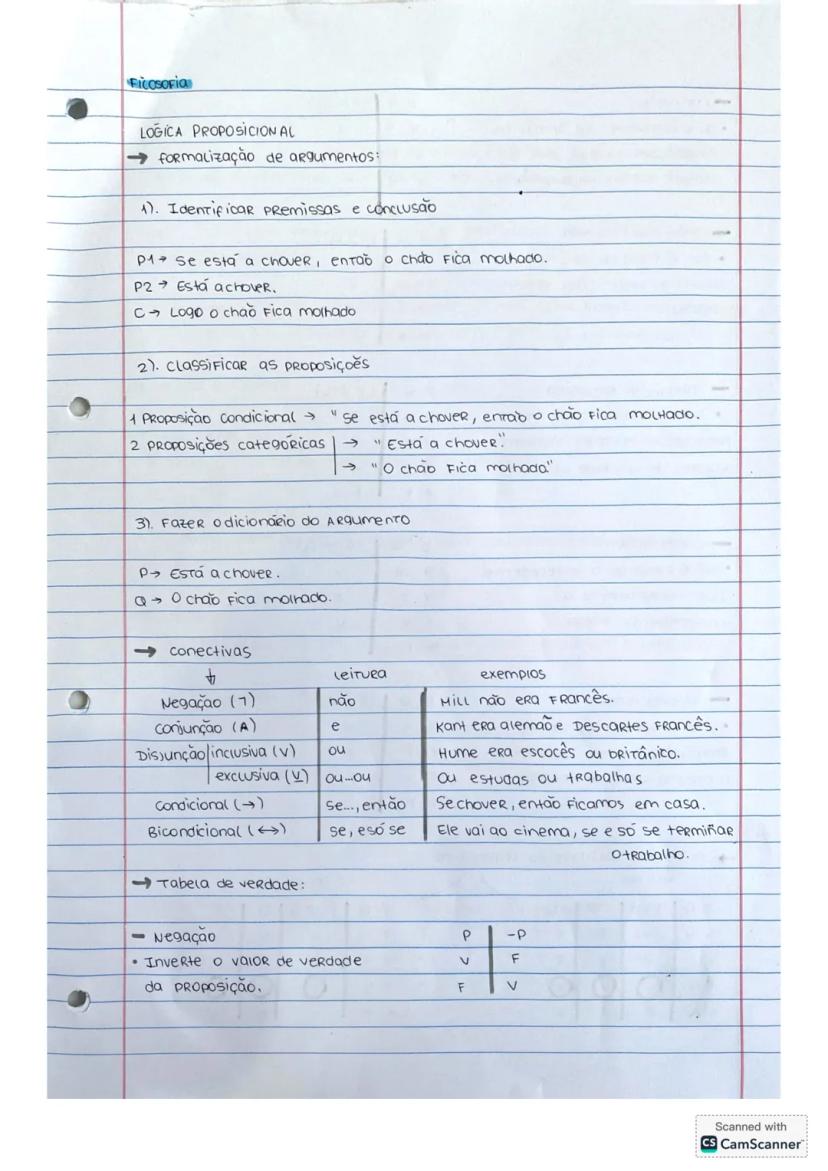 Filosofia
LÓGICA PROPOSICIONAL
→ formalização de argumentos:
1). Identificar premissas e conclusão
P1 → Se está a chover, então o chão fica molhado.
P2 → Está a chover.
C → Logo o chão fica molhado
2). Classificar as proposições
1 Proposição condicional → "Se está a chover, então o chão fica molhado.
2 proposições categóricas → "Está a chover".
→ "O chão fica molhada"
3). Fazer o dicionário do Argumento
P → Está a chover.
Q → O chão fica molhado.
→ conectivas
↓ leitura exemplos
Negação (ㄱ) não Mill não era Francês.
Conjunção (Λ) e Kant era alemão e Descartes Francês.
Disjunção inclusiva (V) ou Hume era escocês ou britânico.
exclusiva (V̲) ou...ou Ou estudas ou trabalhas
Condicional (→) se..., então Se chover, então ficamos em casa.
Bicondicional (↔) se, e só se Ele vai ao cinema, se e só se terminar
o trabalho.
→ Tabela de verdade:
– Negação P -P
• Inverte o valor de verdade V F
da proposição. F V
Scanned with
CS CamScanner